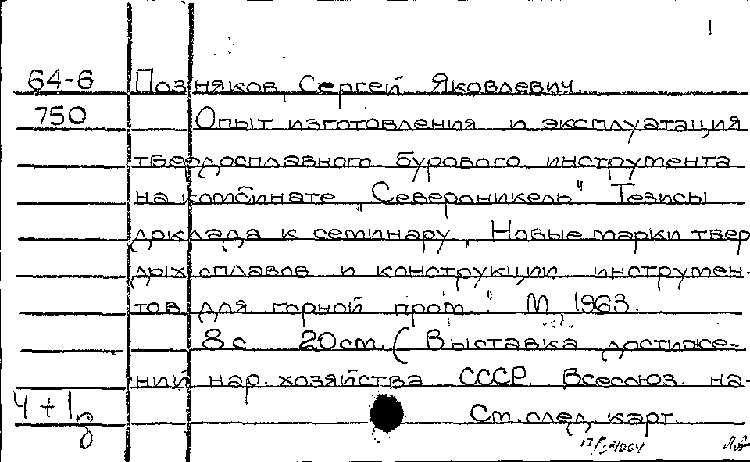 1
64-6 Позняков, Сергей Яковлевич
750 Опыт изготовления и эксплуатация
твердосплавного бурового инструмента
на комбинате „Североникель" Тезисы
доклада к семинару „Новые марки твер
дых сплавов и конструкции инструмен-
тов для горной пром." М 1963.
8 с 20 см. (Выставка достиже-
ний нар. хозяйства СССР. Всесоюз. на-
4 + 1
См. след. карт.